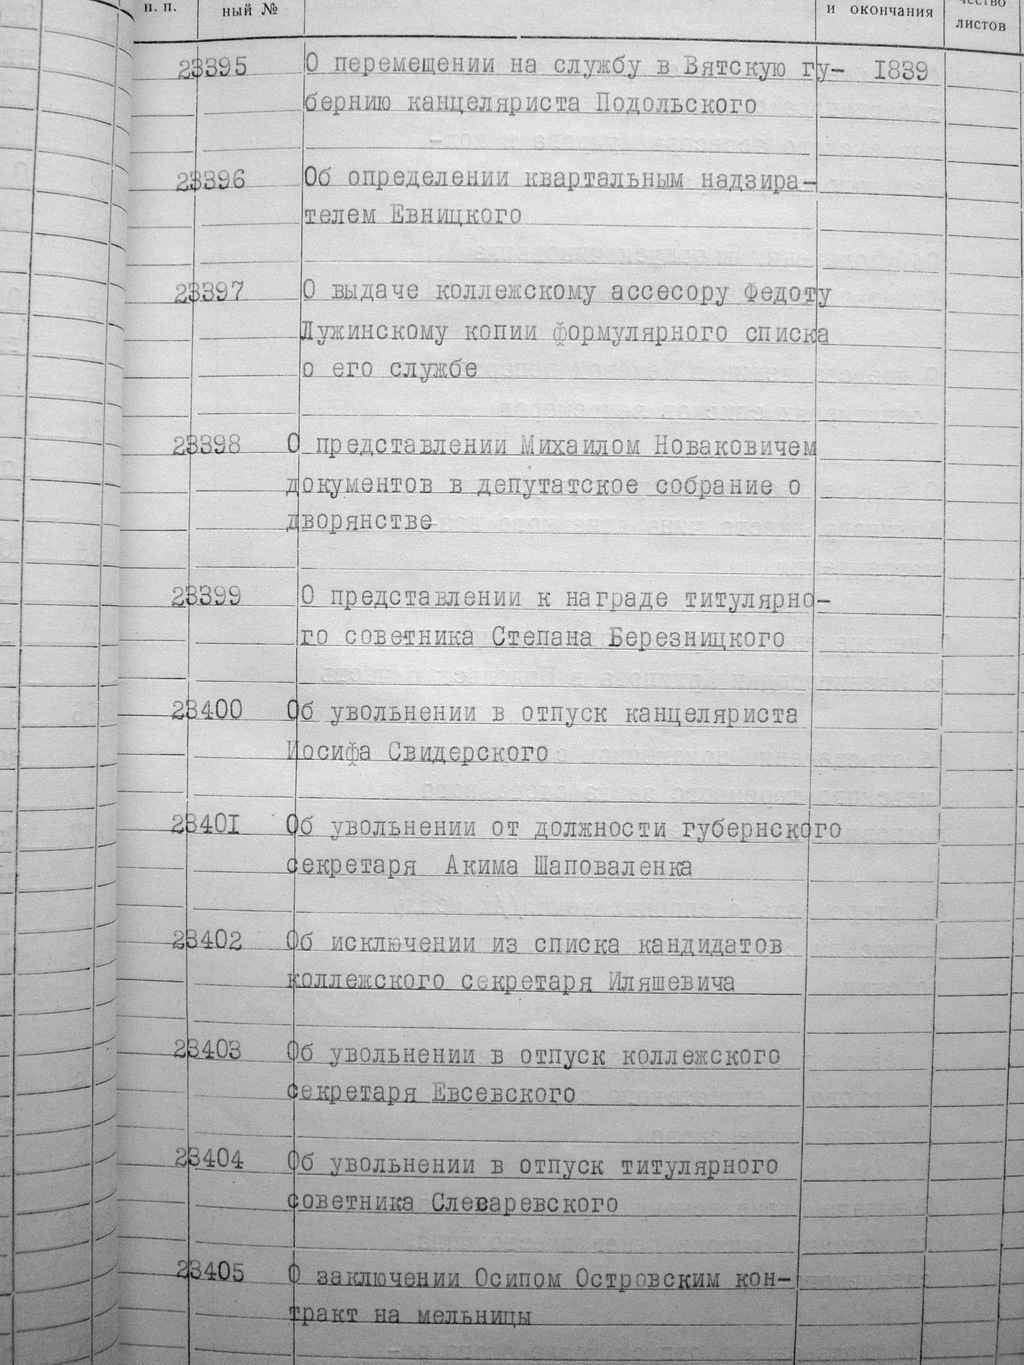 п. п. ный № и окончания чество
листов
23395 О перемещении на службу в Вятскую гу- 1839
бернию канцеляриста Подольского
23396 Об определении квартальным надзира-
телем Евницкого
23397 О выдаче коллежскому ассесору Федоту
Лужинскому копии формулярного списка
о его службе
23398 О представлении Михаилом Новаковичем
документов в депутатское собрание о
дворянстве
23399 О представлении к награде титулярно-
го советника Степана Березницкого
23400 Об увольнении в отпуск канцеляриста
Иосифа Свидерского
23401 Об увольнении от должности губернского
секретаря Акима Шаповаленка
23402 Об исключении из списка кандидатов
коллежского секретаря Иляшевича
23403 Об увольнении в отпуск коллежского
секретаря Евсевского
23404 Об увольнении в отпуск титулярного
советника Слеваревского
23405 О заключении Осипом Островским кон-
тракт на мельницы